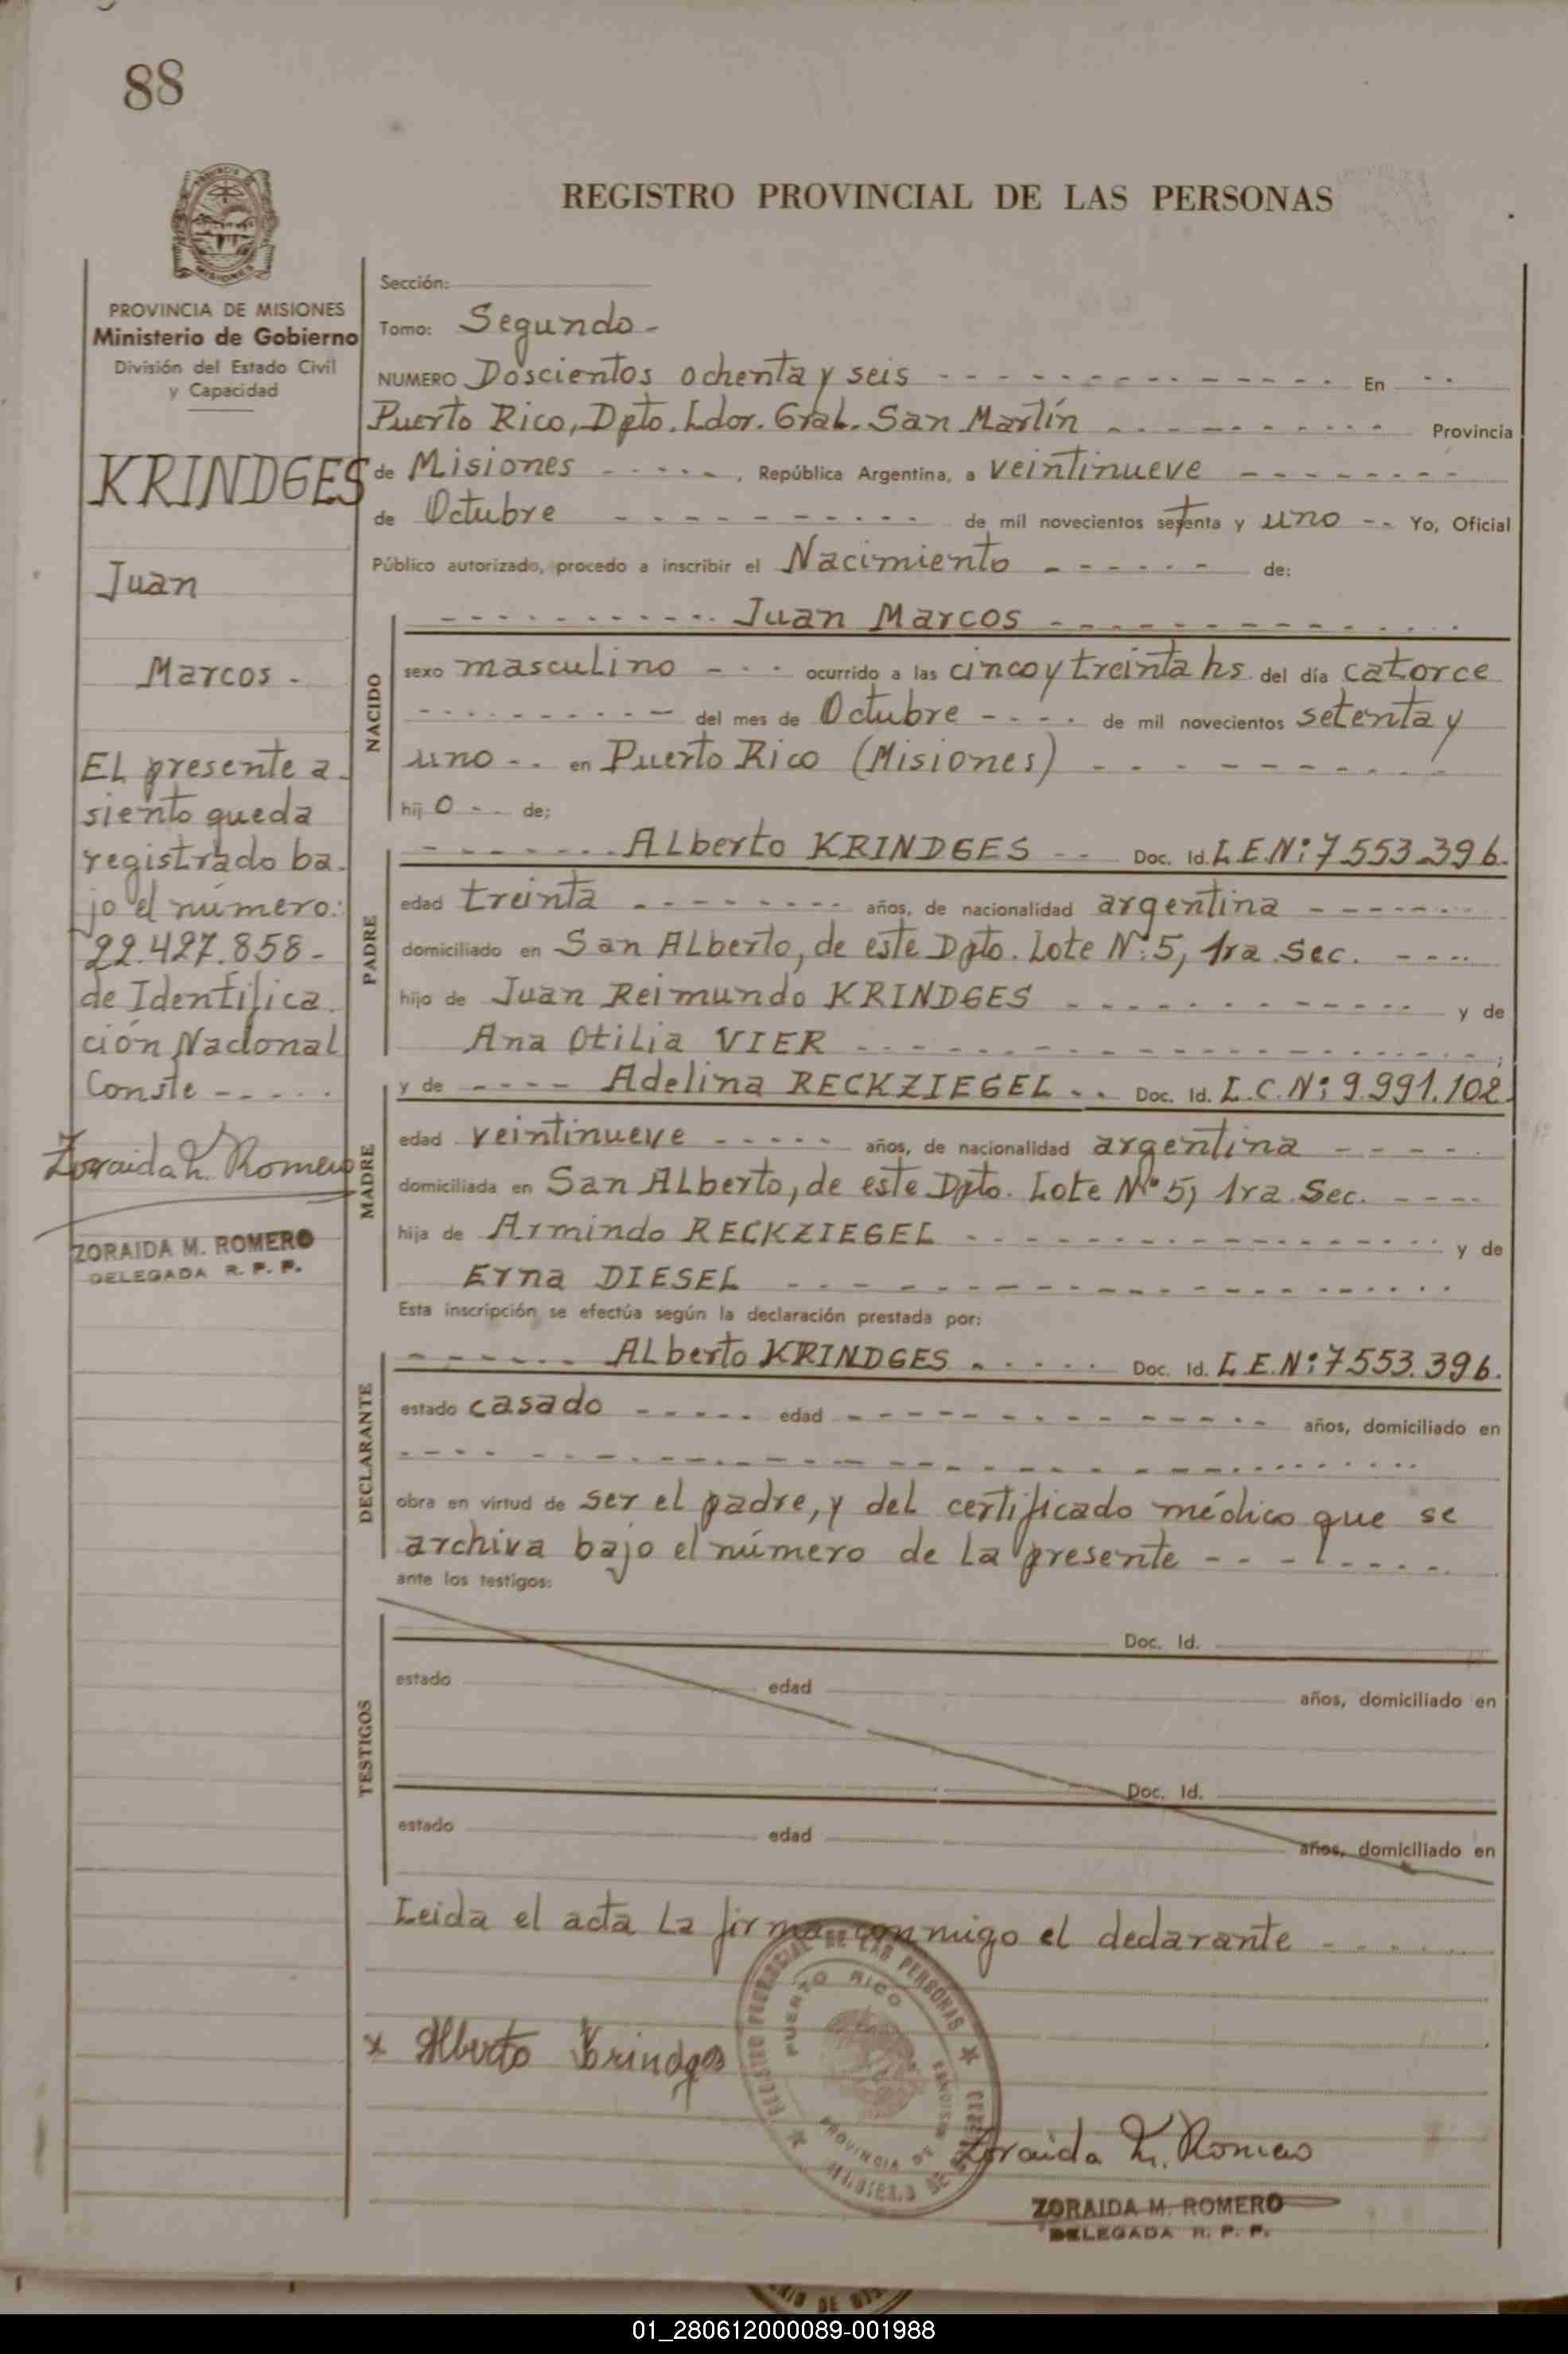 88
REGISTRO PROVINCIAL DE LAS PERSONAS
MISIONES
PROVINCIA DE MISIONES
Ministerio de Gobierno
División del Estado Civil
y Capacidad
KRINDGES
Juan
Marcos -
El presente a-
siento queda
registrado ba-
jo el número:
22.427.858-
de Identifica-
ción Nacional
Conste - - - - -
Zoraida M. Romero
ZORAIDA M. ROMERO
DELEGADA R. P. P.
Sección:
Tomo: Segundo -
NUMERO Doscientos ochenta y seis - - - - En - -
Puerto Rico, Dpto. Ldor. Gral. San Martín - - - - Provincia
de Misiones - - - - , República Argentina, a veintinueve - - - -
de Octubre - - - - de mil novecientos setenta y uno - - Yo, Oficial
Público autorizado, procedo a inscribir el Nacimiento - - - - de:
NACIDO
- - - - Juan Marcos - - - -
sexo masculino - - - ocurrido a las cinco y treinta hs. del día catorce
- - - - del mes de Octubre - - - - de mil novecientos setenta y
uno - - en Puerto Rico (Misiones) - - - -
hijo - - de:
PADRE
- - - - Alberto KRINDGES - - Doc. Id. L.E.Nº: 7.553.396.
edad treinta - - - - años, de nacionalidad argentina - - - -
domiciliado en San Alberto, de este Dpto. Lote Nº: 5, 1ra. Sec. - - - -
hijo de Juan Reimundo KRINDGES - - - - y de
Ana Otilia VIER - - - - ;
MADRE
y de - - - - Adelina RECKZIEGEL - - Doc. Id. L.C.Nº: 9.991.102
edad veintinueve - - - - años, de nacionalidad argentina - - - -
domiciliada en San Alberto, de este Dpto. Lote Nº 5, 1ra. Sec. - - - -
hija de Armindo RECKZIEGEL - - - - y de
Erna DIESEL - - - -
Esta inscripción se efectúa según la declaración prestada por:
DECLARANTE
- - - - Alberto KRINDGES - - - - Doc. Id. L.E.Nº: 7.553.396.
estado casado - - - - edad - - - - años, domiciliado en
- - - -
obra en virtud de ser el padre, y del certificado médico que se
archiva bajo el número de la presente - - - -
ante los testigos:
TESTIGOS
Doc. Id.
estado edad años, domiciliado en
Doc. Id.
estado edad años, domiciliado en
Leida el acta la firma conmigo el declarante - - - -
x Alberto Krindges
PUERTO RICO
PROVINCIA DE
DE LAS PERSONAS
Zoraida M. Romero
ZORAIDA M. ROMERO
DELEGADA R. P. P.
01_280612000089-001988